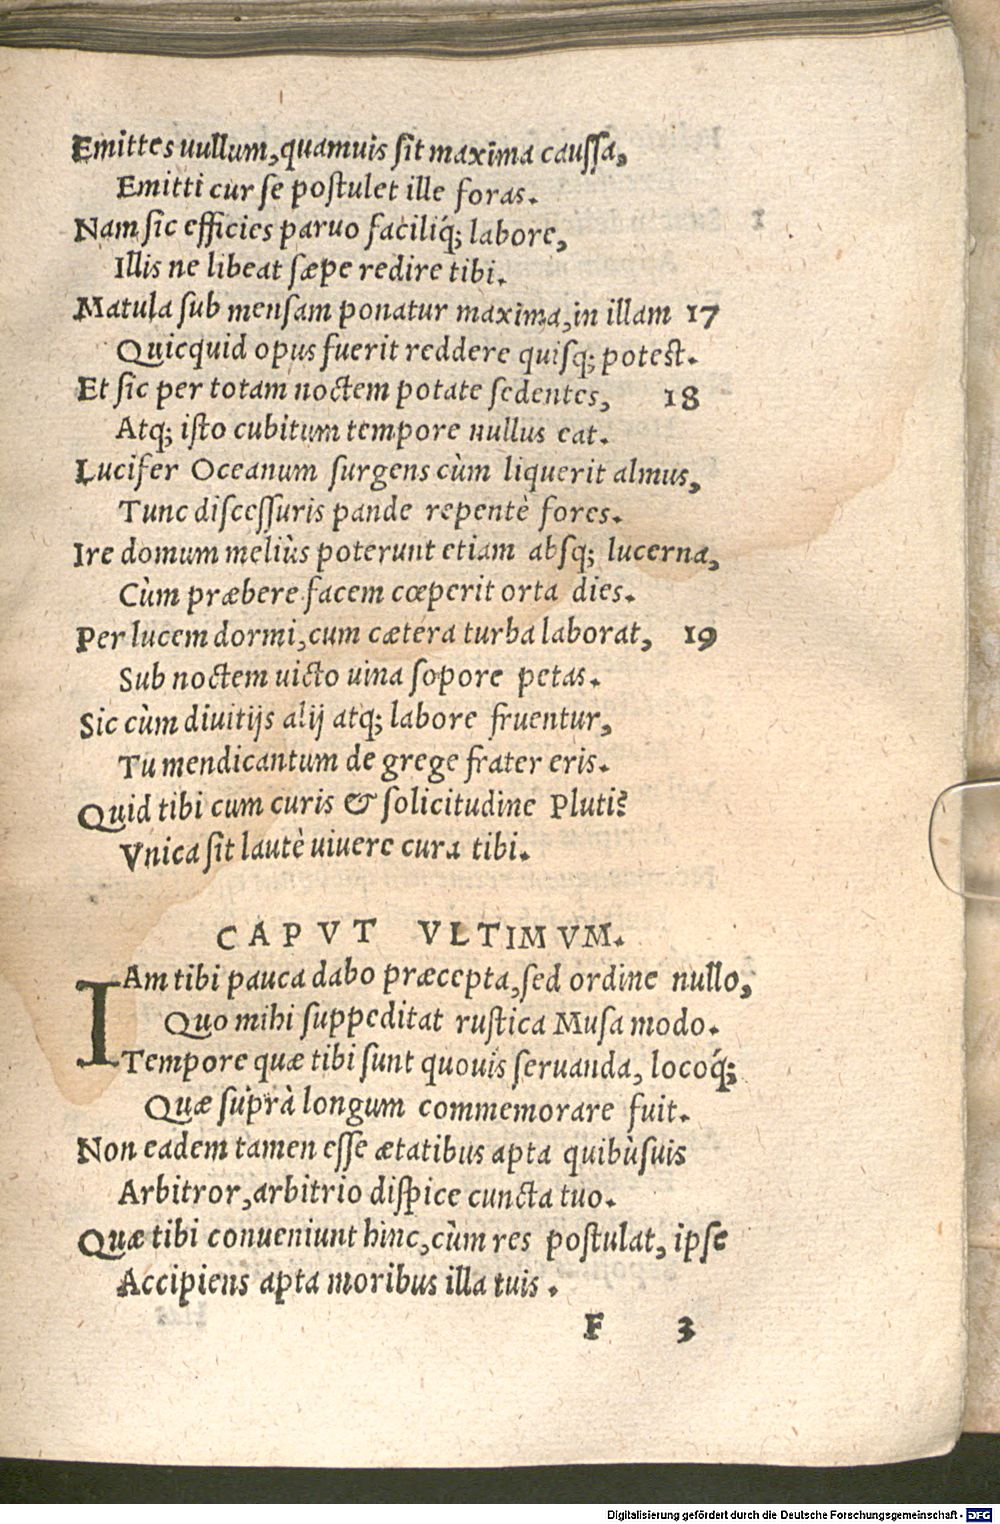 Emittes uullum, quamuis ſit maxima cauſſa,
Emitti cur ſe poſtulet ille foras.
Nam ſic efficies paruo faciliq́; labore,
Illis ne libeat ſæpe redire tibi.
Matula ſub menſam ponatur maxima, in illam 17
Quicquid opus fuerit reddere quiſq; poteſt.
Et ſic per totam noctem potate ſedentes, 18
Atq; iſto cubitum tempore nullus eat.
Lucifer Oceanum ſurgens cùm liquerit almus,
Tunc diſceſſuris pande repentè fores.
Ire domum meliùs poterunt etiam abſq; lucerna,
Cùm præbere facem cœperit orta dies.
Per lucem dormi, cum cætera turba laborat, 19
Sub noctem uicto uina ſopore petas.
Sic cùm diuitijs alij atq; labore fruentur,
Tu mendicantum de grege frater eris.
Quid tibi cum curis & ſolicitudine Pluti?
Vnica ſit lautè uiuere cura tibi.
CAPVT VLTIMVM.
IAm tibi pauca dabo præcepta, ſed ordine nullo,
Quo mihi ſuppeditat ruſtica Muſa modo.
Tempore quæ tibi ſunt quouis ſeruanda, locoq́;
Quæ ſuprà longum commemorare fuit.
Non eadem tamen eſſe ætatibus apta quibùſuis
Arbitror, arbitrio diſpice cuncta tuo.
Quæ tibi conueniunt hinc, cùm res poſtulat, ipſe
Accipiens apta moribus illa tuis.
F 3
Digitalisierung gefördert durch die Deutsche Forschungsgemeinschaft - DFG